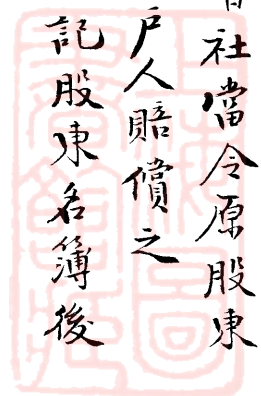 社當令原股東
戶人賠償之
記股東名簿後